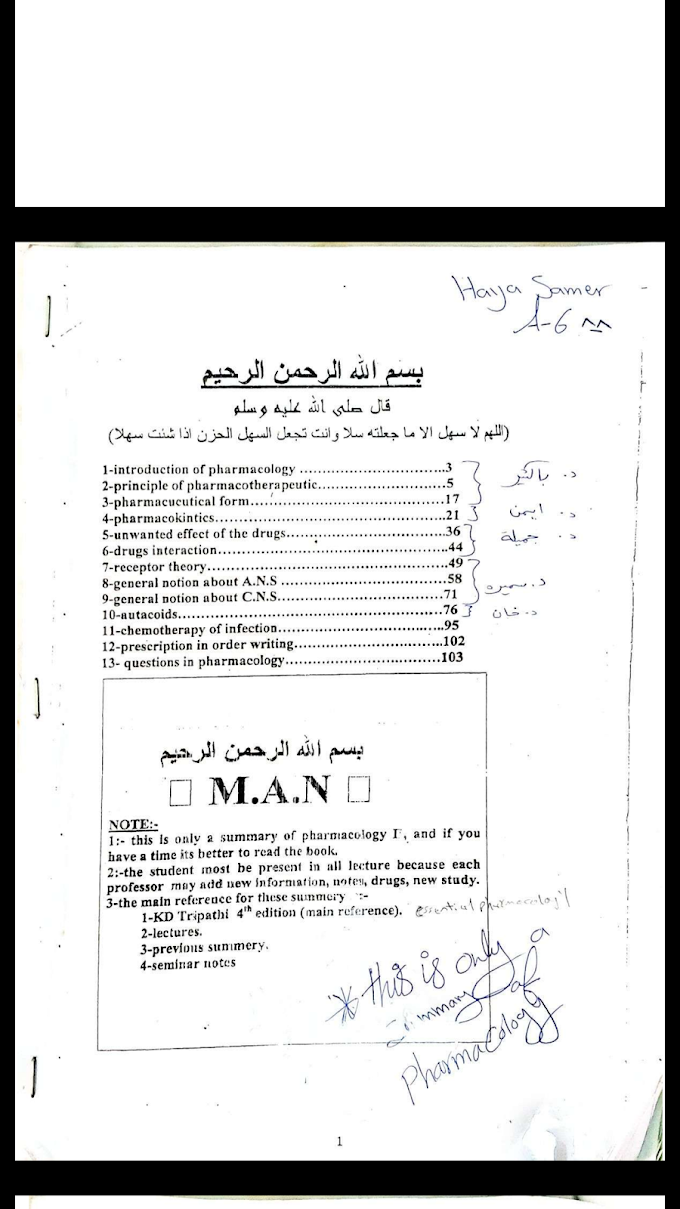 Haya Samer
A-6 ^^
بسم الله الرحمن الرحيم
قال صلى الله عليه وسلم
(اللهم لا سهل الا ما جعلته سلا وانت تجعل السهل الحزن اذا شئت سهلا)
1-introduction of pharmacology ................................3
2-principle of pharmacotherapeutic............................5 د. بالخير
3-pharmacucutical form........................................17
4-pharmacokintics.............................................21 د. ايمن
5-unwanted effect of the drugs................................36 د. جميلة
6-drugs interaction...........................................44
7-receptor theory.............................................49
8-general notion about A.N.S .................................58 د. سميره
9-general notion about C.N.S..................................71
10-autacoids..................................................76 د. خان
11-chemotherapy of infection..................................95
12-prescription in order writing..............................102
13- questions in pharmacology.................................103
بسم الله الرحمن الرحيم
□ M.A.N □
NOTE:-
1:- this is only a summary of pharmacology I, and if you
have a time its better to read the book.
2:-the student most be present in all lecture because each
professor may add new information, notes, drugs, new study.
3-the main reference for these summery :-
1-KD Tripathi 4th edition (main reference). essential pharmacology
2-lectures.
3-previous summery.
4-seminar notes
* this is only a
Summary of
pharmacology
1